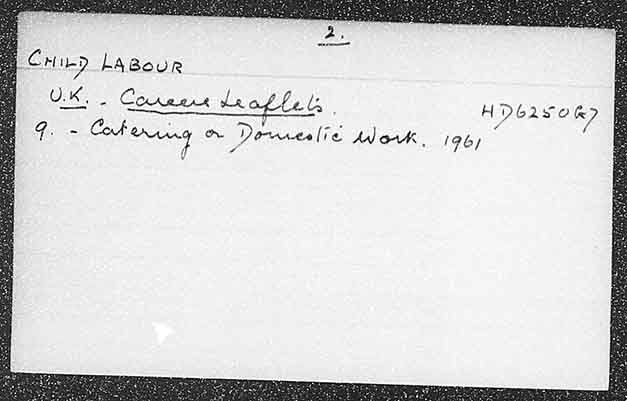 2.
CHILD LABOUR
U.K. - Careers Leaflets.
HD6250G7
9. - Catering or Domestic Work. 1961